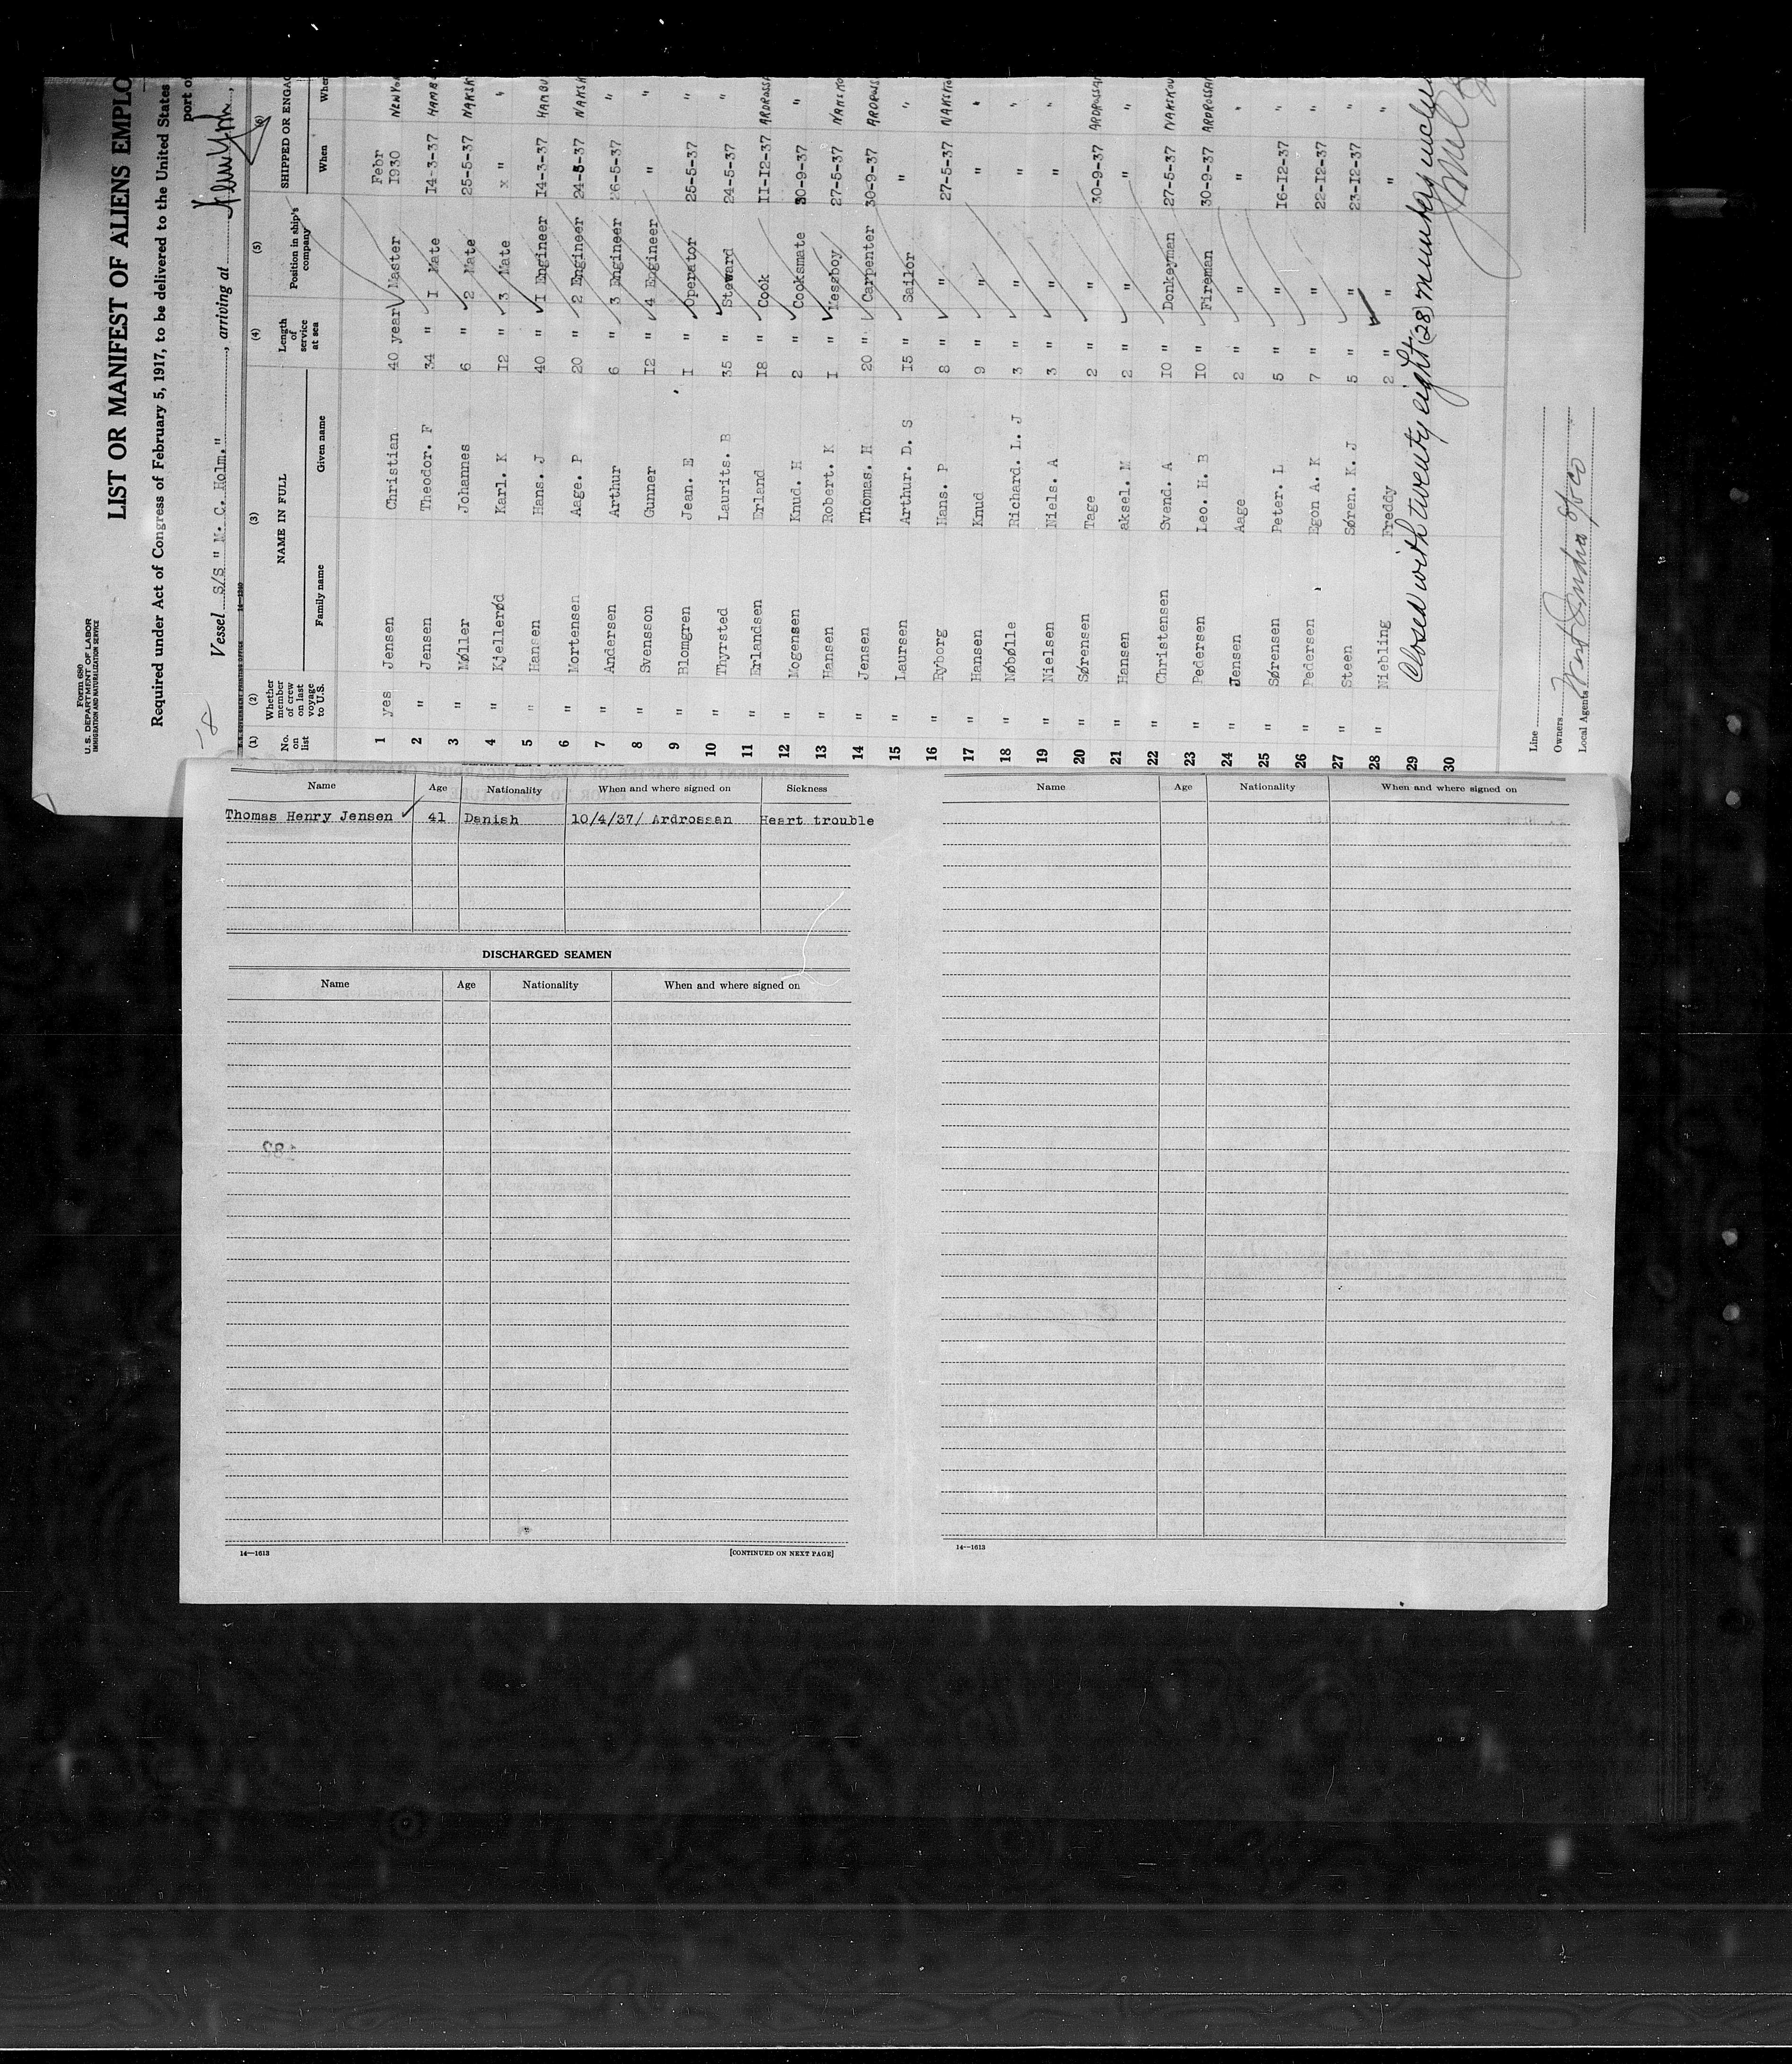 Form 680
U. S. DEPARTMENT OF LABOR
IMMIGRATION AND NATURALIZATION SERVICE
LIST OR MANIFEST OF ALIENS EMPLO
Required under Act of Congress of February 5, 1917, to be delivered to the United States
port of
Vessel S/S " M. C. Holm." , arriving at New York ,
U.S. GOVERNMENT PRINTING OFFICE 14—1240
(1) (2) (3) (4) (5) (6)
No. on list Whether member of crew on last voyage to U.S. NAME IN FULL Family name Given name Length of service at sea Position in ship's company SHIPPED OR ENGAG When Wher
1 yes Jensen Christian 40 year Master Febr 1930 NEW YO
2 " Jensen Theodor. F 34 " I Mate 14-3-37 HAMB
3 " Møller Johannes 6 " 2 Mate 25-5-37 NAKSK
4 " Kjellerød Karl. K 12 " 3 Mate x " "
5 " Hansen Hans. J 40 " I Engineer 14-3-37 HAMBU
6 " Mortensen Aage. P 20 " 2 Engineer 24-5-37 NAKSK
7 " Andersen Arthur 6 " 3 Engineer 26-5-37 "
8 " Svensson Gunner 12 " 4 Engineer " "
9 " Blomgren Jean. E I " Operator 25-5-37 "
10 " Thyrsted Laurits. B 35 " Steward 24-5-37 "
11 " Erlandsen Erland 18 " Cook 11-12-37 ARDROSSA
12 " Mogensen Knud. H 2 " Cooksmate 30-9-37 "
13 " Hansen Robert. K I " Messboy 27-5-37 NAKSKO
14 " Jensen Thomas. H 20 " Carpenter 30-9-37 ARDROSS
15 " Laursen Arthur. D. S 15 " Sailor " "
16 " Ryborg Hans. P 8 " " 27-5-37 NAKSKO
17 " Hansen Knud 9 " " " "
18 " Nøbølle Richard. L. J 3 " " " "
19 " Nielsen Niels. A 3 " " " "
20 " Sørensen Tage 2 " " 30-9-37 ARDROSSA
21 " Hansen aksel. M 2 " " " "
22 " Christensen Svend. A 10 " Donkeyman 27-5-37 NAKSKOU
23 " Pedersen Leo. H. B 10 " Fireman 30-9-37 ARDROSSA
24 " Jensen Aage 2 " " " "
25 " Sørensen Peter. L 5 " " 16-12-37 "
26 " Pedersen Egon A. K 7 " " 22-12-37 "
27 " Steen Søren. K. J 5 " " 23-12-37 "
28 " Niebling Freddy 2 " " " "
29 Closed with twenty eight (28) members
30
Line
Owners
Local Agents West India
Name Age Nationality When and where signed on Sickness
Thomas Henry Jensen 41 Danish 10/4/37/ Ardrossan Heart trouble
DISCHARGED SEAMEN
Name Age Nationality When and where signed on
14—1613 [CONTINUED ON NEXT PAGE]
Name Age Nationality When and where signed on
14—1613